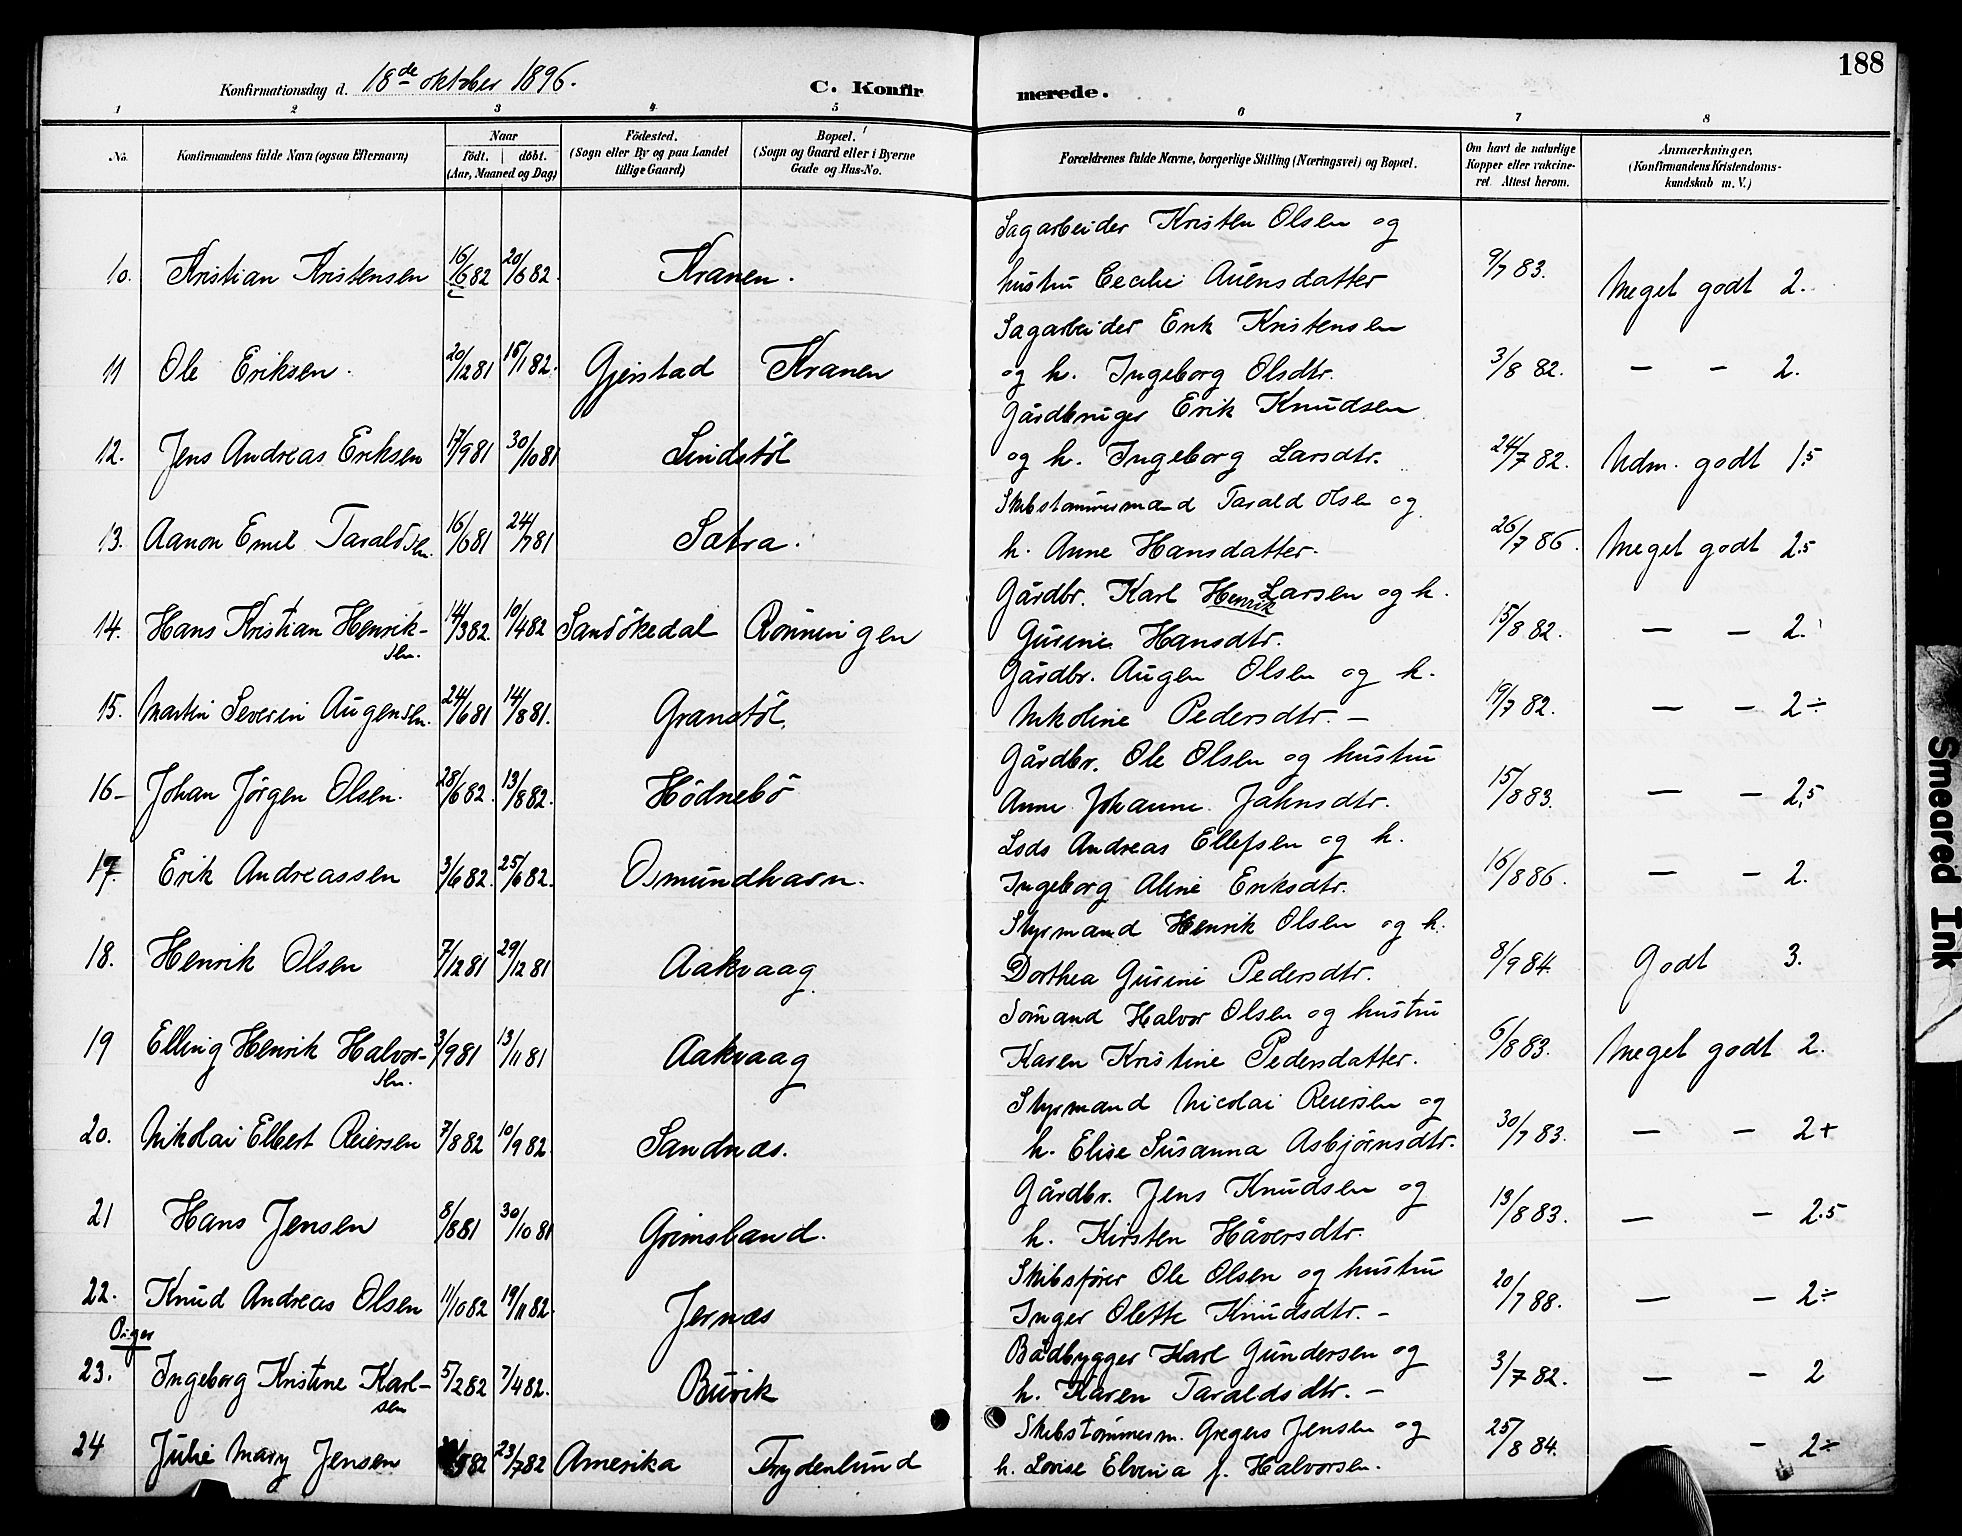 188
Konfirmationsdag d. 18de oktober 1896.
C. Konfirmerede.
1 2 3 4 5 6 7 8
No.
Konfirmandens fulde Navn (ogsaa Efternavn)
Naar
födt. döbt.
(Aar, Maaned og Dag)
Födested.
(Sogn eller By og paa Landet
tillige Gaard)
Bopæl.
(Sogn og Gaard eller i Byerne
Gade og Hus-No.
Forældrenes fulde Navne, borgerlige Stilling (Næringsvei) og Bopæl.
Om havt de naturlige
Kopper eller vakcine-
ret. Attest herom.
Anmærkninger.
(Konfirmandens Kristendoms-
kundskab m. V.)
Sagarbeider Kristen Olsen og
10. Kristian Kristensen 16/6 82 20/6 82. Kranen. hustru Cecilie Auensdatter 9/7 83. Meget godt 2.
Sagarbeider Erik Kristensen
11 Ole Eriksen. 20/12 81 15/1 82. Gjerstad Kranen og h. Ingeborg Olsdtr. 3/8 82. — - 2.
Gårdbruger Erik Knudsen
12. Jens Andreas Eriksen 17/9 81 30/10 81 Lindstøl og h. Ingeborg Larsdtr. 24/7 82. Udm. godt 1.5
Skibstømmermand Tarald Olsen og
13. Aanon Emil Taraldsen. 16/6 81 24/7 81 Sætra. h. Anne Hansdatter. 26/7 86. Meget godt 2.5
Gårdbr. Karl Henrik Larsen og h.
14. Hans Kristian Henrik-
sen. 14/3 82 10/4 82 Sandökedal Rönningen Gurine Hansdtr. 15/8 82. — — 2.
Gårdbr. Augen Olsen og h.
15. Martin Severin Augensen. 24/6 81 14/8 81. Granstøl. Nikoline Pedersdtr. — 19/7 82. — — 2÷
Gårdbr. Ole Olsen og hustru
16— Johan Jørgen Olsen. 28/6 82. 13/8 82. Hödnebö Anne Johanne Jahnsdtr. 15/8 83. — — 2,5
Lods Andreas Ellefsen og h.
17. Erik Andreassen 3/6 82. 25/6 82. Osmundhavn. Ingeborg Aline Eriksdtr. 16/8 86. — — 2.
Styrmand Henrik Olsen og h.
18. Henrik Olsen 7/12 81 29/12 81 Aakvaag Dorthea Gurine Pedersdtr. 8/9 84. Godt 3.
Sømand Halvor Olsen og hustru
19 Elling Henrik Halvor-
sen. 3/9 81 13/11 81 Aakvaag Karen Kristine Pedersdatter. 6/8 83. Meget godt 2.
Styrmand Nicolai Reiersen og
20. Nikolai Elbert Reiersen 7/8 82 10/9 82. Sandnæs. h. Elise Susanna Asbjørnsdtr. 30/7 83. — — 2+
Gårdbr. Jens Knudsen og
21 Hans Jensen 8/8 81 30/10 81 Grimsland. h. Kirsten Håversdtr. 13/8 83. — — 2.5
Skibsfører Ole Olsen og hustru
22. Knud Andreas Olsen 11/10 82 19/11 82. Jernæs Inger Olette Knudsdtr. — 20/7 88. — — 2÷
Piger
Bådbygger Karl Gundersen og
23. Ingeborg Kristine Karl-
sen 5/2 82 7/4 82. Buvik h. Karen Taraldsdtr. — 3/7 82. — - 2
Skibstømmerm. Gregers Jensen og
24 Julie Mary Jensen 82 23/7 82 Amerika Frydenlund h. Lovise Elvina f. Halvorsen. 25/8 84. - - 2÷
Smeared Ink